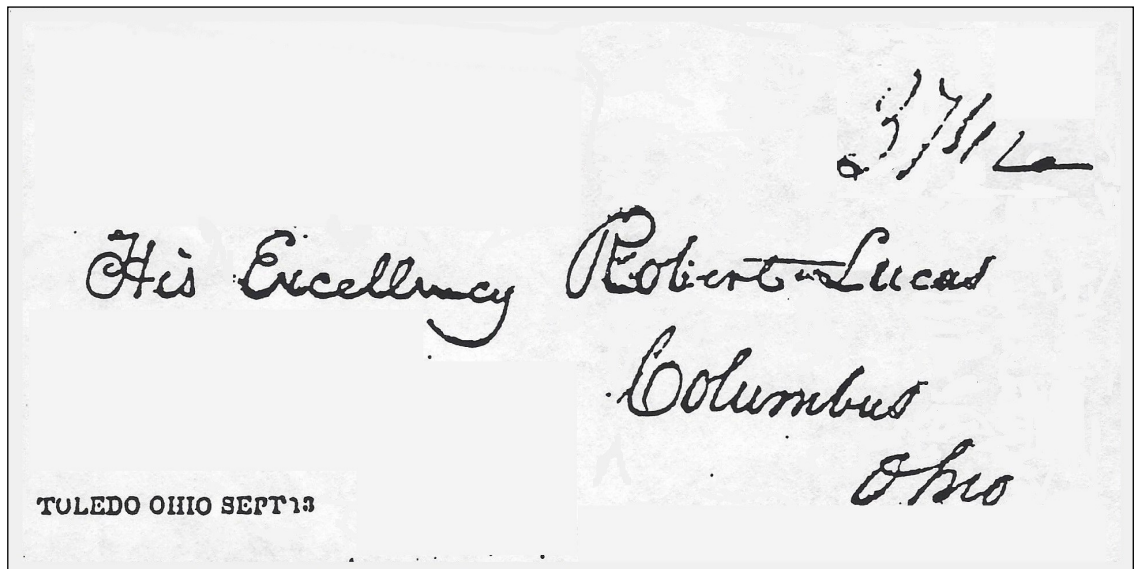 37 1/2
His Excellency Robert Lucas
Columbus
Ohio
TOLEDO OHIO SEPT 13